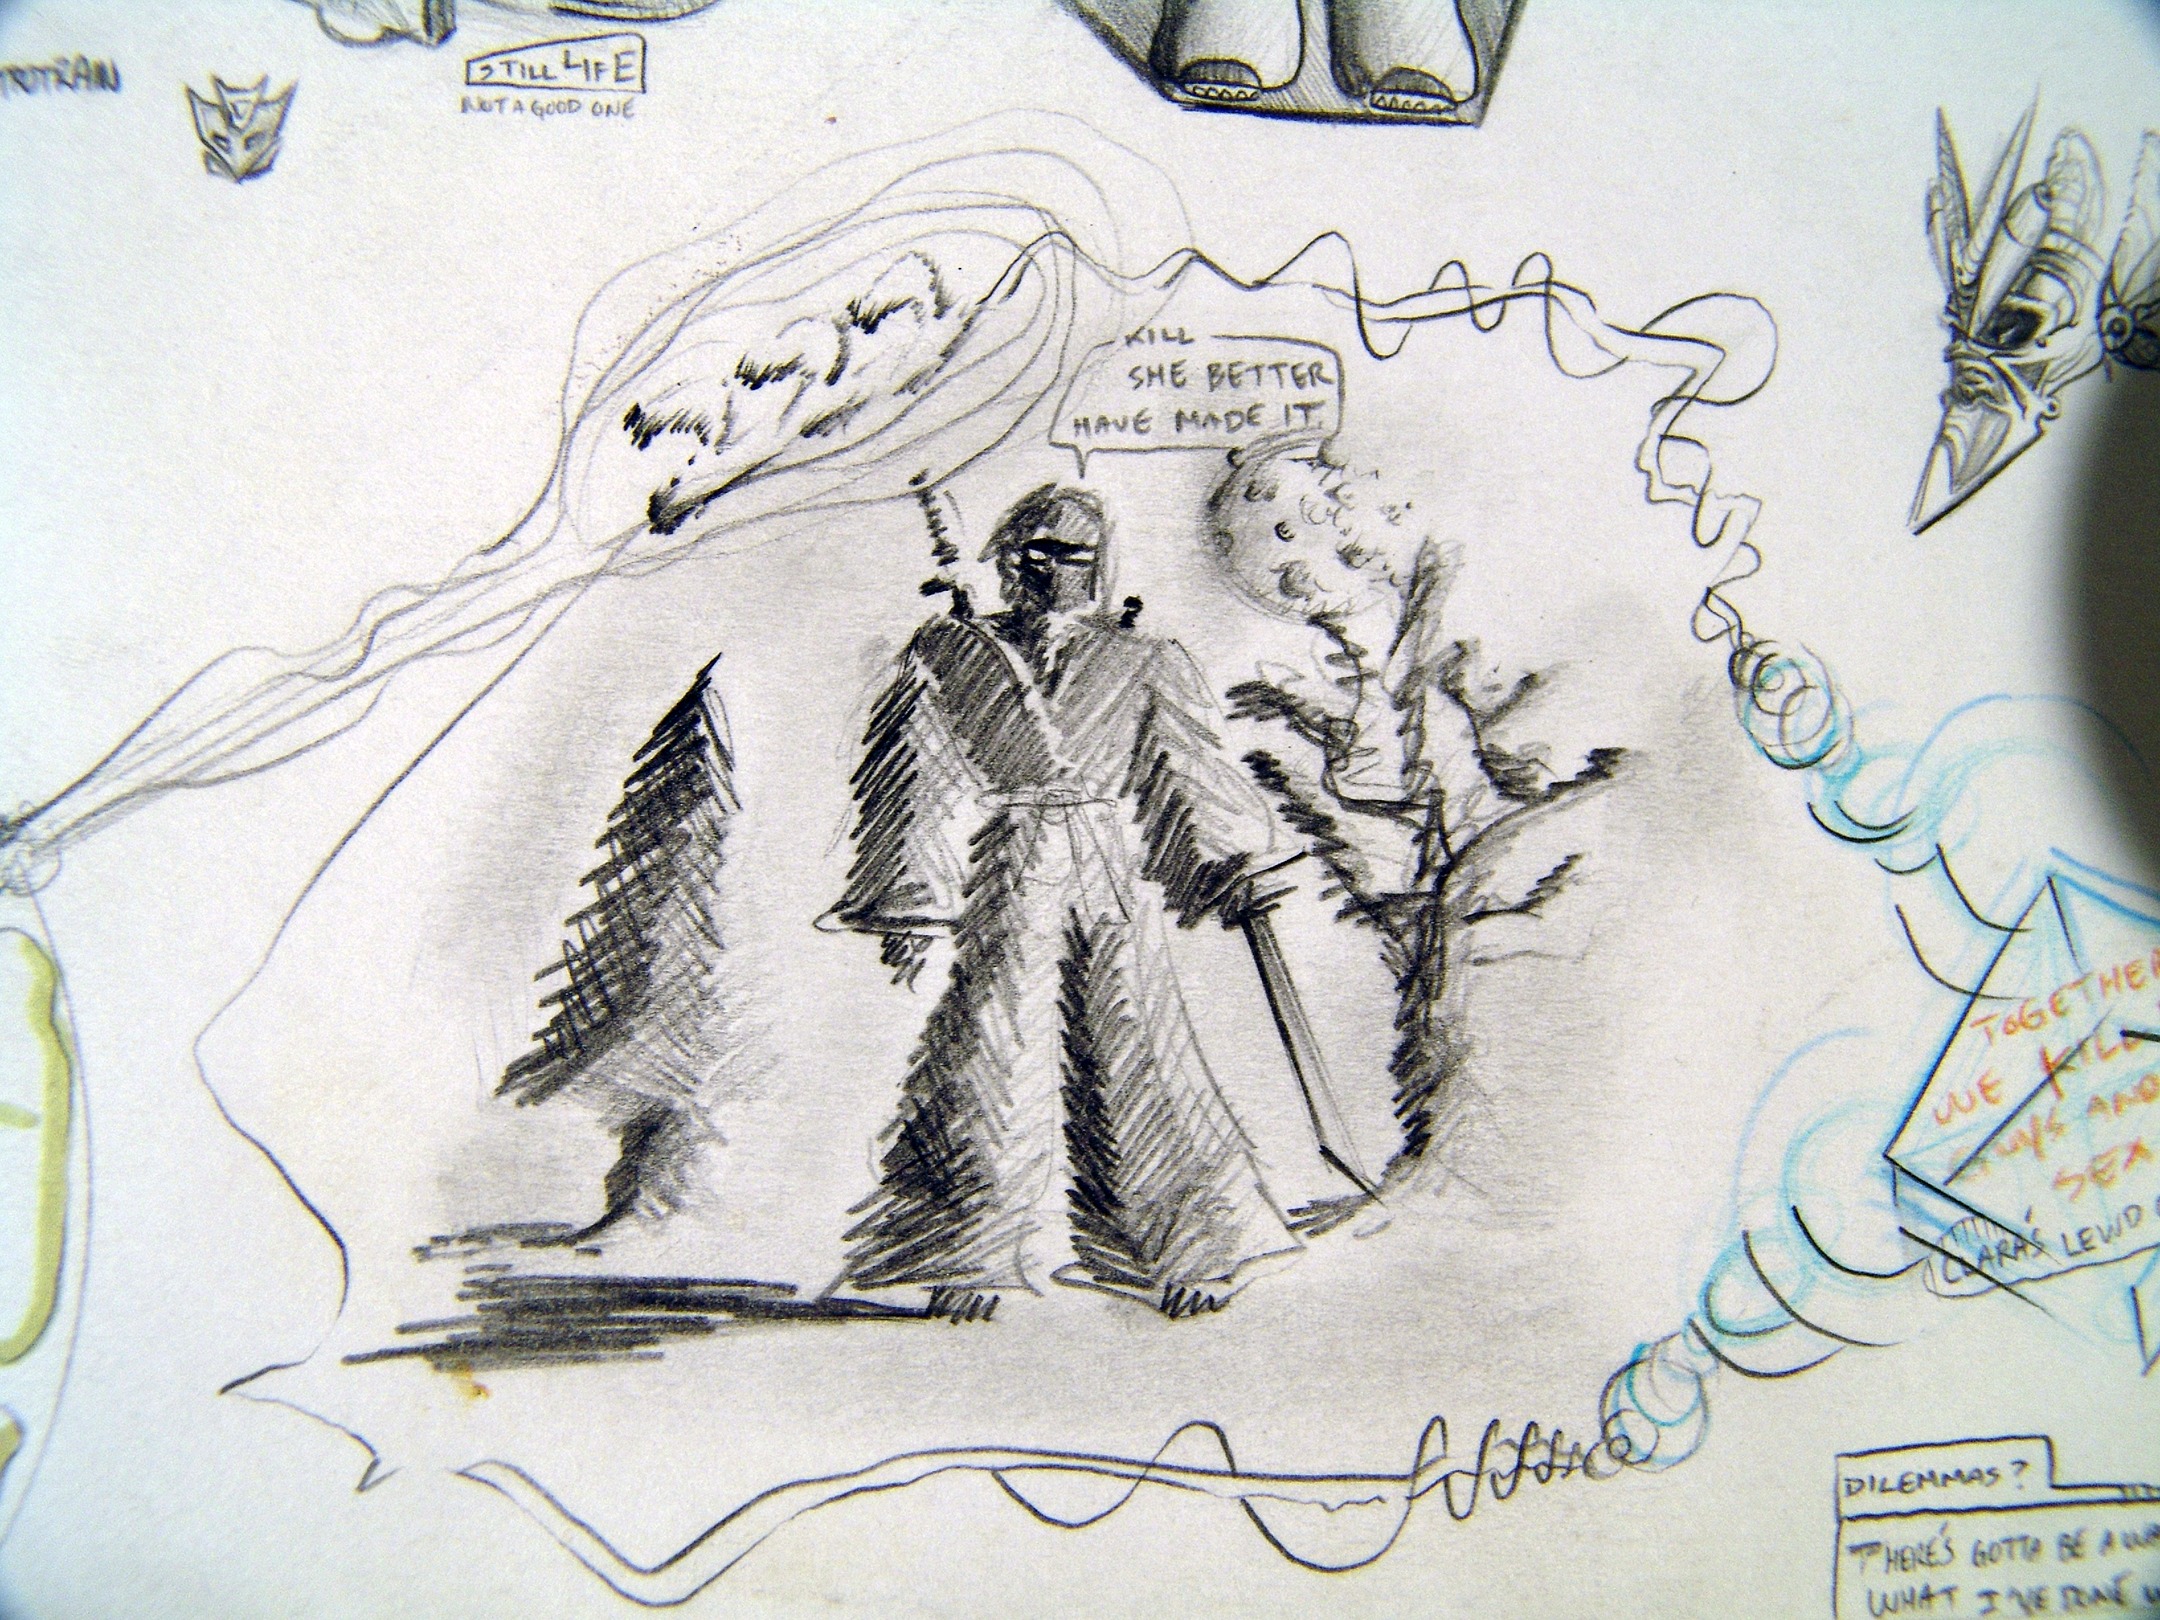 STILL LIFE
NOT A GOOD ONE
KILL
SHE BETTER
HAVE MADE IT.
TOGETHER
WE KILL
GUYS AND
SEX
CLARA'S LEWD
DILEMMAS?
THERE'S GOTTA BE A
WHAT I'VE DONE